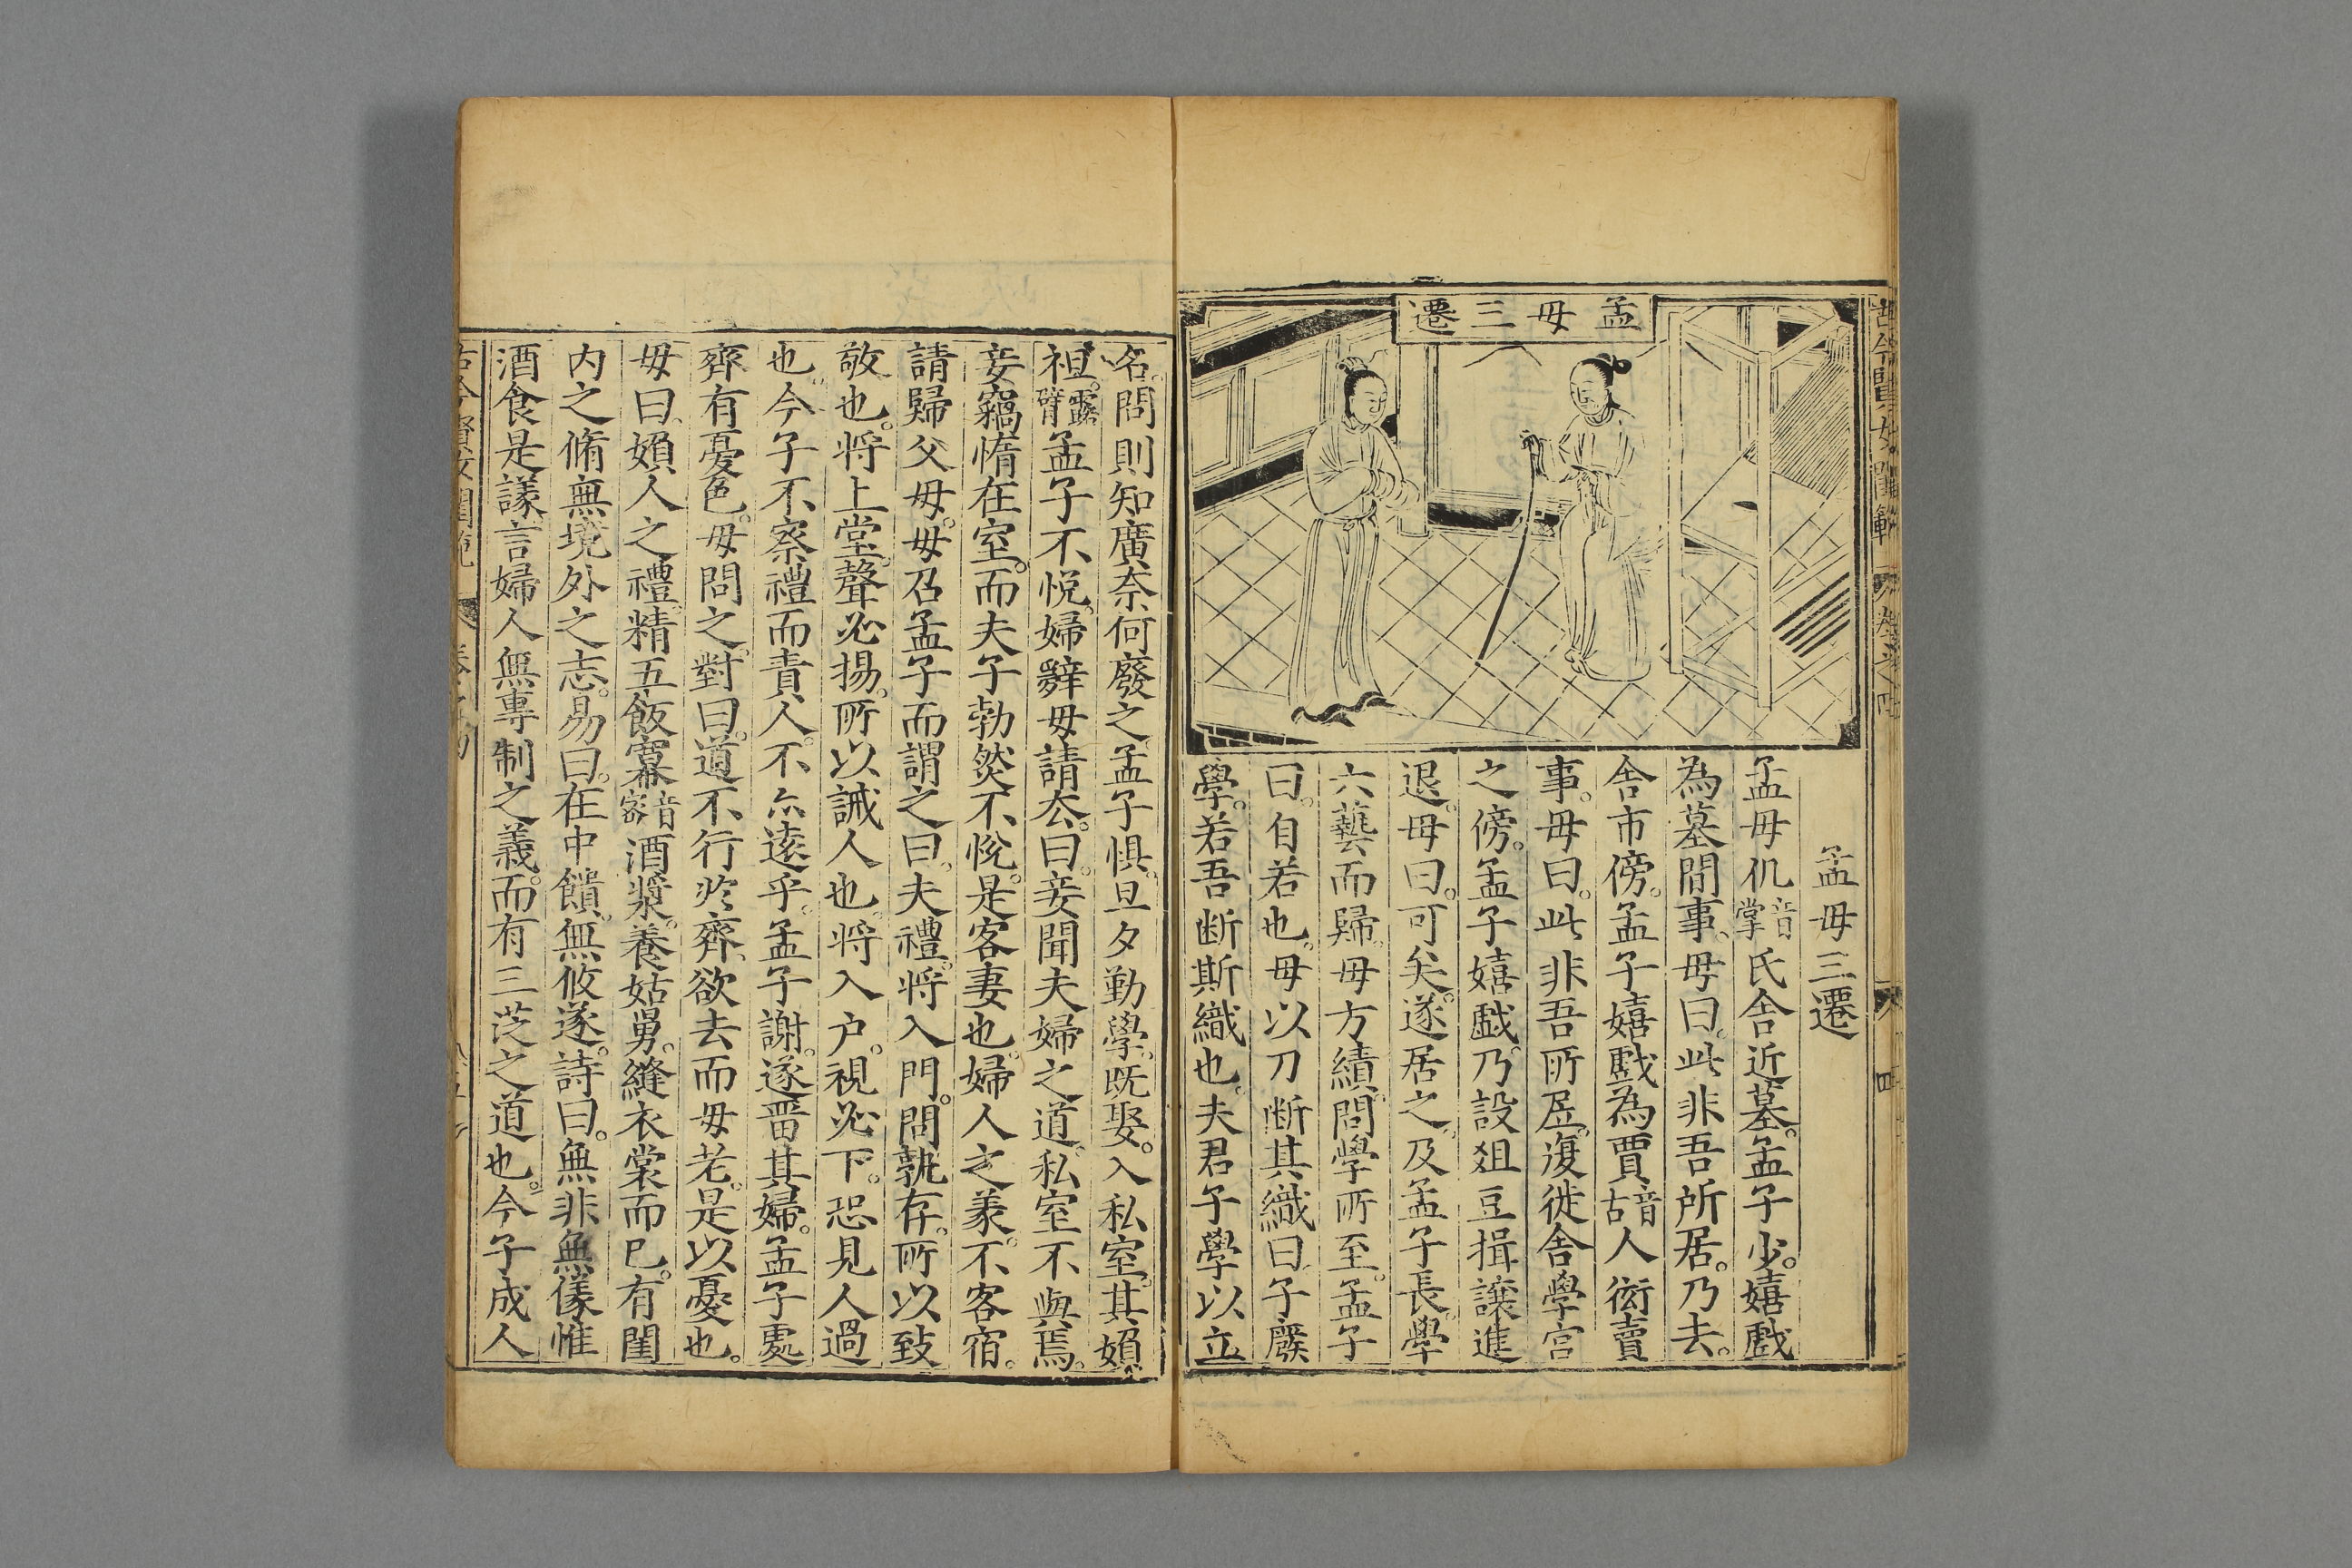 孟母三遷
孟母三遷
孟母仉音掌氏舍近墓。孟子少。嬉戯
為墓間事。母曰。此非吾所居。乃去。
舍市傍。孟子嬉戯為賈音古人衒賣
事。母曰。此非吾所居。復徙舍學宫
之傍。孟子嬉戯。乃設俎豆揖讓進
退。母曰。可矣。遂居之。及孟子長。學
六藝而歸。母方績。問學所至。孟子
曰。自若也。母以刀断其織曰。子廢
學。若吾断斯織也。夫君子學以立
名。問則知廣。奈何廢之。孟子懼。旦夕勤學。既娶。入私室。其婦
袒。露臂孟子不悦。婦辤母請去。曰。妾聞夫婦之道。私室不與焉。
妾竊惰在室。而夫子勃然不悅。是客妻也。婦人之義。不客宿。
請歸父母。母召孟子而謂之曰。夫禮。将入門。問孰存。所以致
敬也。将上堂。聲必揚。所以誡人也。将入户。視必下。恐見人過
也。今子不察禮而責人。不亦遠乎。孟子謝。遂畱其婦。孟子處
齊有憂色。母問之。對曰。道不行於齊。欲去而母老。是以憂也。
母曰。婦人之禮。精五飯冪音密酒漿。養姑舅。縫衣裳而已。有閨
内之脩無境外之志。易曰。在中饋。無攸遂。詩曰。無非無儀惟
酒食是議。言婦人無専制之義。而有三從之道也。今子成人